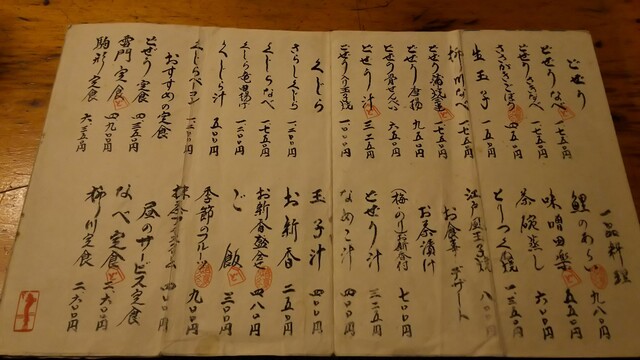 どぜう
どぜうなべ 一七五〇円
どぜうさきなべ 一七五〇円
ささがきごぼう 四五〇円
生玉子 一五〇円
柳川なべ 一七五〇円
どぜう蒲焼
どぜう唐揚 一七五〇円
どぜう骨せんべい 六五〇円
どぜう汁 三二五円
一〇〇〇円
くじら
さらしくじら 一二〇〇円
くじらなべ 一七五〇円
くじら竜田揚げ
くじら汁 五〇〇円
くじらベーコン
おすすめの定食
どぜう定食 四三五〇円
雷門定食 四九〇〇円
駒形定食 六三五〇円
一品料理
鯉のあらい 九八〇円
味噌田楽 五五〇円
茶碗蒸し 六〇〇円
とりつくね焼
江戸風玉子焼 八〇〇円
お食事 デザート
お茶漬け
(梅・のり)お新香付 七〇〇円
どぜう汁 三二五円
なめこ汁 四〇〇円
玉子汁 四〇〇円
お新香 二五〇円
お新香盛合せ 四八〇円
ご飯 三〇〇円
季節のフルーツ 九〇〇円
抹茶アイスクリーム 四〇〇円
昼のサービス定食
なべ定食 二六〇〇円
柳川定食 二六〇〇円